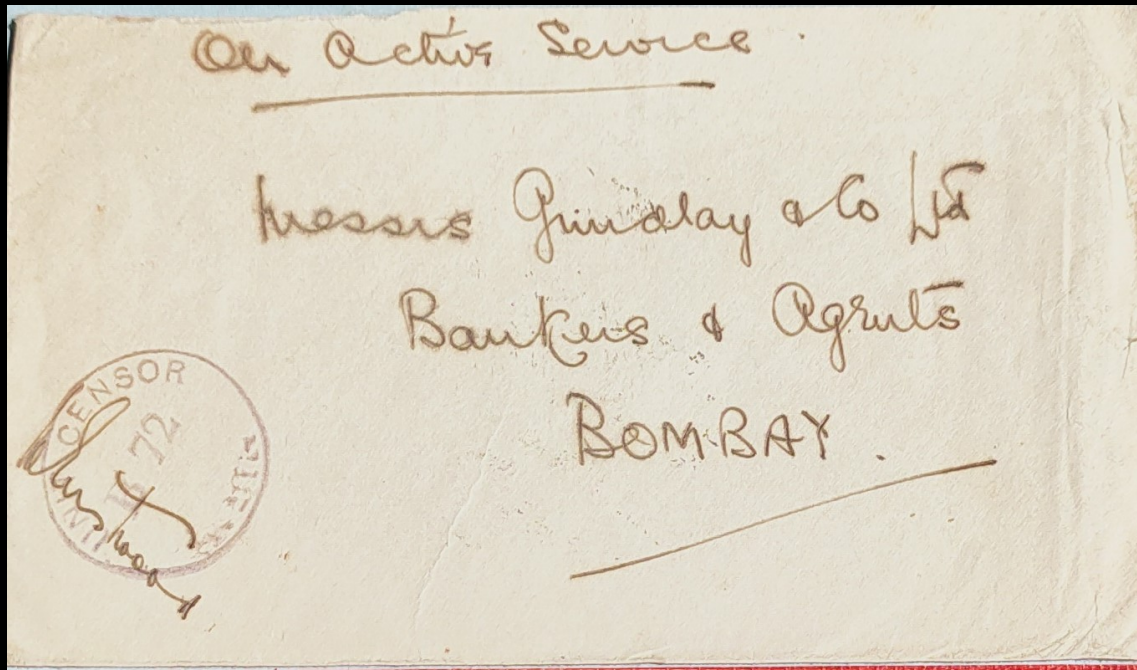 On Active Service.
Messrs Grindlay & Co Ltd
Bankers & Agents
BOMBAY.
UNIT CENSOR
72